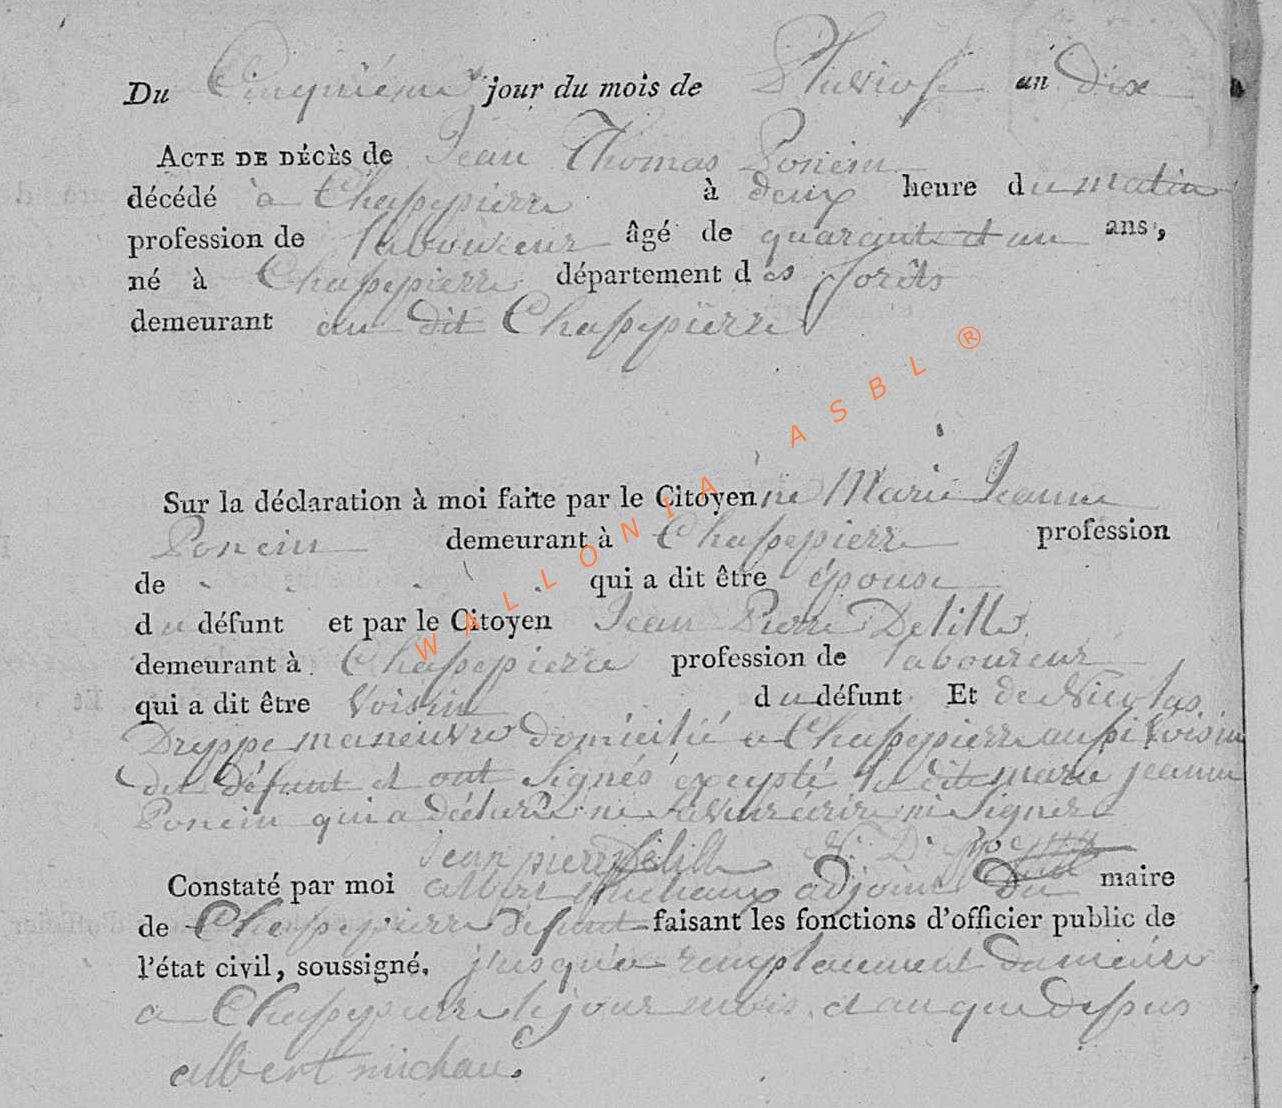 Du Cinquiéme jour du mois de Pluviose an dix
ACTE DE DÉCÈS de Jean Thomas Poncin
décédé à Chassepierre à deux heure du matin
profession de laboureur âgé de quarante et un ans,
né à Chassepierre département des forêts
demeurant au dit Chassepierre
Sur la déclaration à moi faite par le Citoyenne Marie Jeanne
Poncin demeurant à Chassepierre profession
de qui a dit être épouse
du défunt et par le Citoyen Jean Pierre Delille
demeurant à Chassepierre profession de laboureur
qui a dit être Voisin du défunt Et de Nicolas
Dryppe maneuvre domicilié a Chassepierre aussi Voisin
du défunt et ont signés excepté la dite marie jeanne
Poncin qui a déclaré ne savoir écrire ni signer
jean pierre Delille N. D.
Constaté par moi albert michaux adjoint du maire
de Chassepierre defunt faisant les fonctions d'officier public de
l'état civil, soussigné, jusqu'a remplacement du meire
a Chassepierre le jour mois et an que dessus
albert michau
WALLONIA ASBL ®